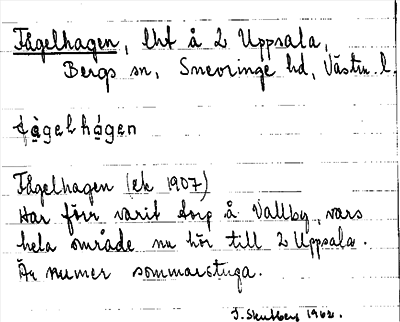 Fågelhagen, lht å 2 Uppsala,
Bergs sn, Snevringe hd, Västm. l.
fågelhagen
Fågelhagen (ek 1907)
Har förr varit torp å Vallby, vars
hela område nu hör till 2 Uppsala.
Är numer sommarstuga.
J. Skutberg 1962.